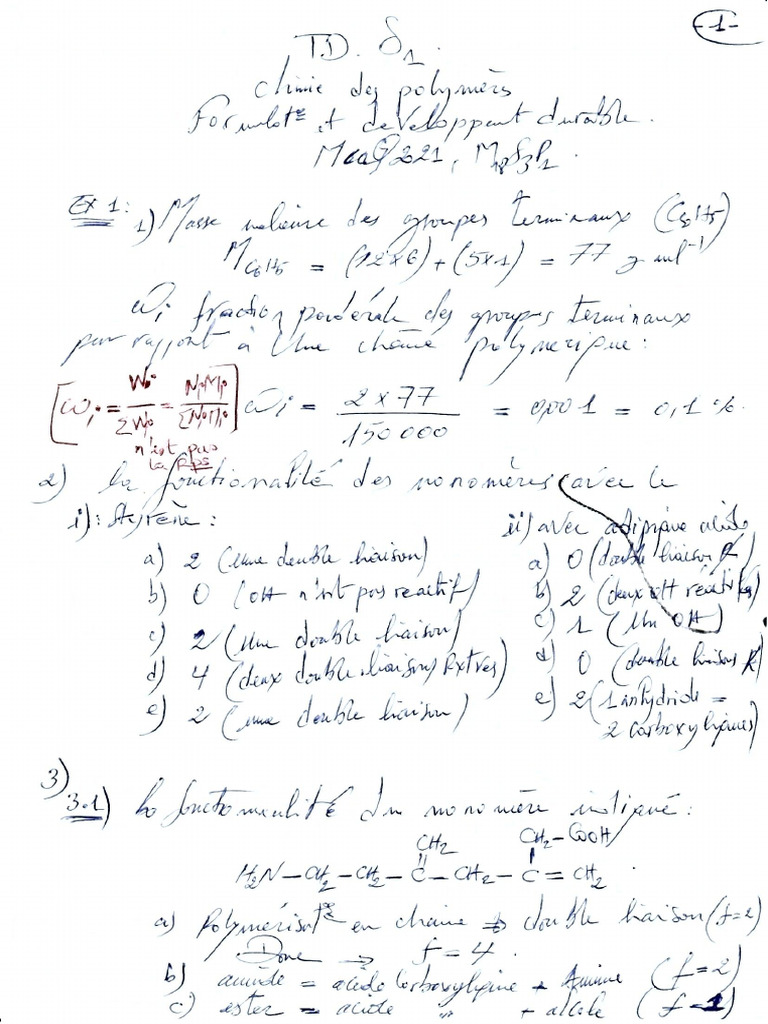 -1-
T.D. S1.
chimie des polymères
Formulat° et développent durable.
Ex 1:
1) Masse molaire des groupes terminaux (C6H5)
M C6H5 = (12x6) + (5x1) = 77 g mol⁻¹
ωi fraction pondérale des groupes terminaux
par rapport à Une chaîne polymerique:
[ωi = Wi/ΣWi = NiMi/ΣNiMi] ωi = 2 x 77 / 150 000 = 0,001 = 0,1 %.
n'est pas
la
2) la fonctionalité des monomères (avec le
i): Styrène:
a) 2 (Une double liaison)
b) 0 (OH n'est pas reactif)
c) 2 (Une double liaison)
d) 4 (deux double liaisons)
e) 2 (une double liaison)
ii) avec adipique acide
a) 0 (double liaison
b) 2 (deux OH réactifs)
c) 1 (Un OH)
d) 0 (double liaison
e) 2 (1 anhydride =
2 carboxyliques)
3)
3.1) la fonctionnalité du monomère indiqué:
CH2 CH2-COOH
H2N-CH2-CH2-C-CH2-C=CH2
a) Polymérisat° en chaine → double liaison (f=2)
Donc → f = 4.
b) amide = acide Carboxylique + Amine (f=2)
c) ester = acide " + alcole (f=1)